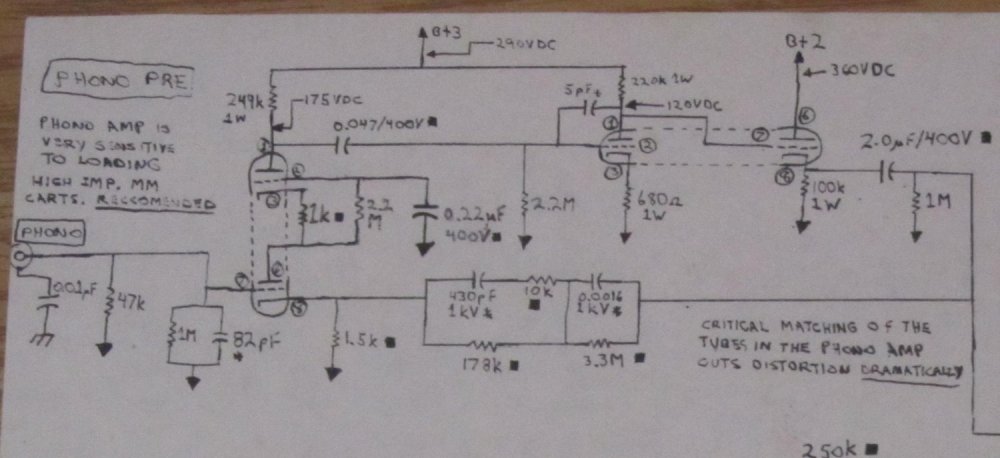 B+3
290VDC
B+2
PHONO PRE
5pF*
220k 1W
360VDC
249k
1W
175VDC
120VDC
0.047/400V ■
PHONO AMP IS
VERY SENSITIVE
TO LOADING
HIGH IMP. MM
CARTS. RECCOMENDED
①
①
⑥
②
②
⑦
③
③
⑧
2.0µF/400V ■
1k ■
2.2
M
0.22µF
400V ■
2.2M
680Ω
1W
100k
1W
1M
PHONO
⑥
⑦
⑧
0.01µF
47k
1M
82pF
*
1.5k ■
430pF
1kV *
10k
■
0.0016
1kV *
178k ■
3.3M ■
CRITICAL MATCHING OF THE
TUBES IN THE PHONO AMP
CUTS DISTORTION DRAMATICALLY
250k ■